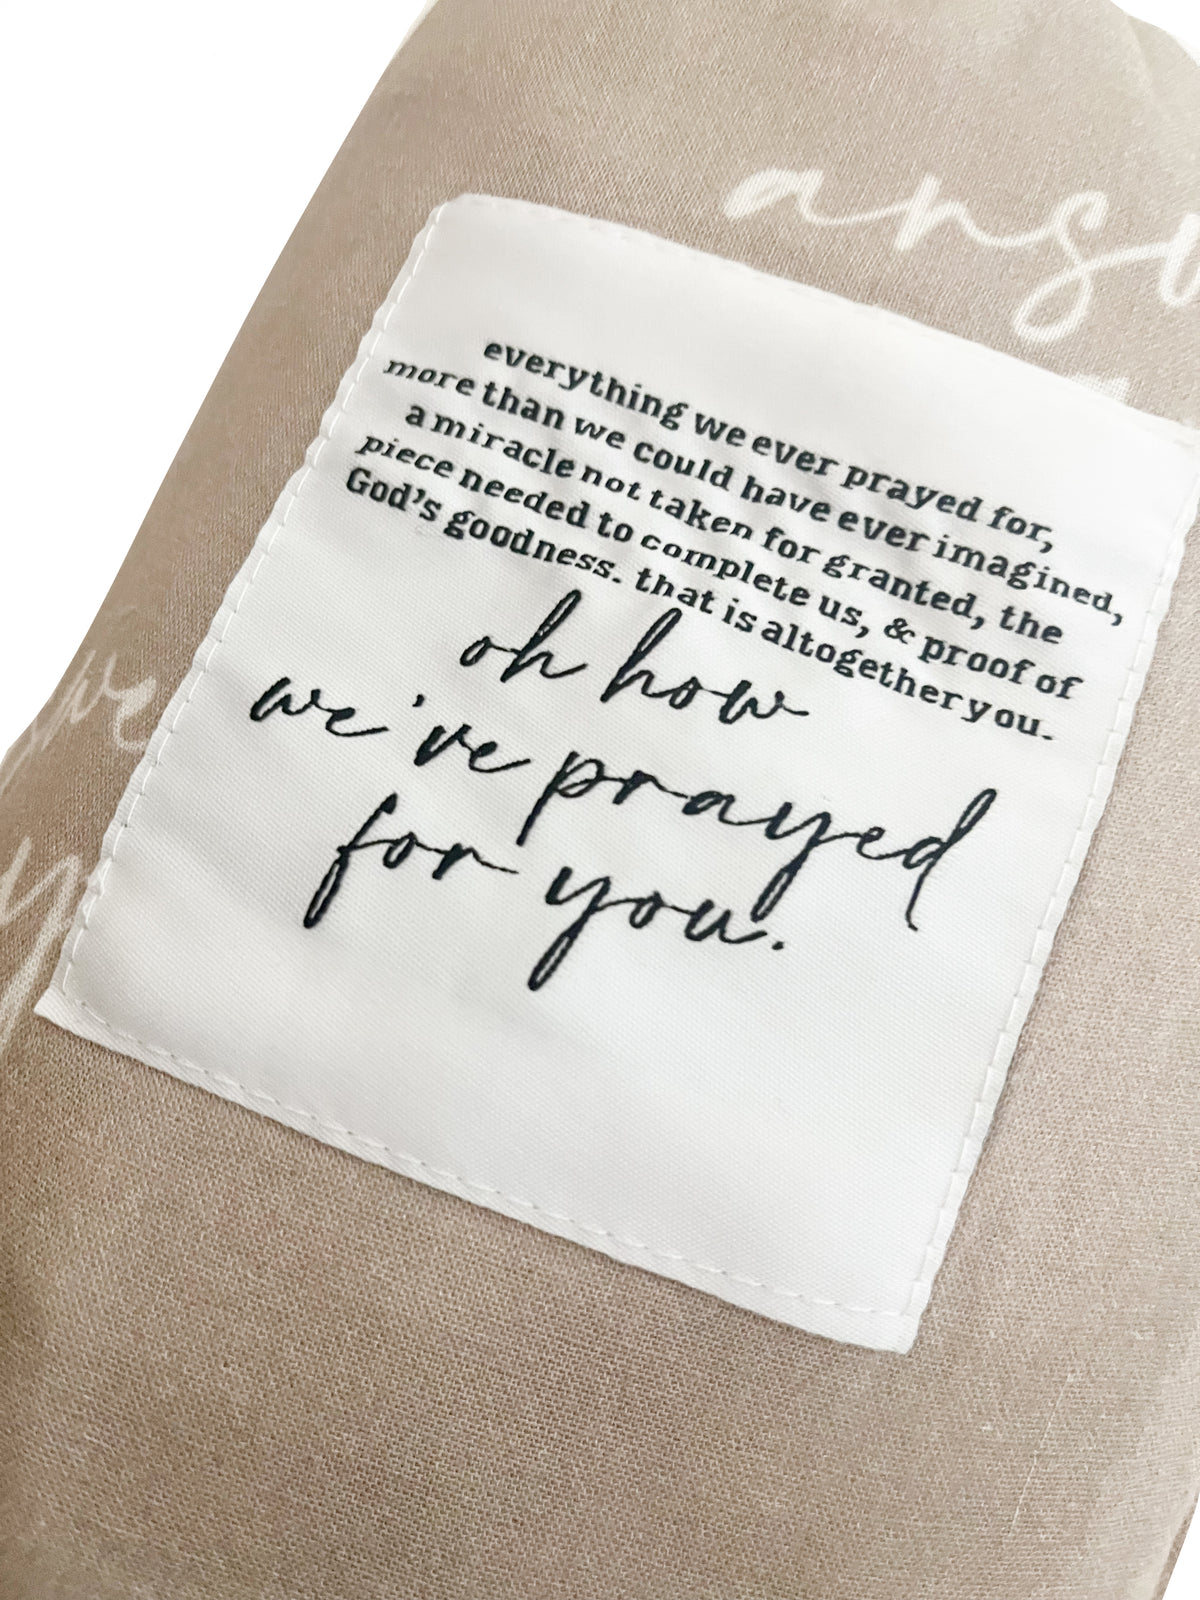 everything we ever prayed for,
more than we could have ever imagined,
a miracle not taken for granted, the
piece needed to complete us, & proof of
God's goodness. that is altogether you.
oh how
we've prayed
for you.